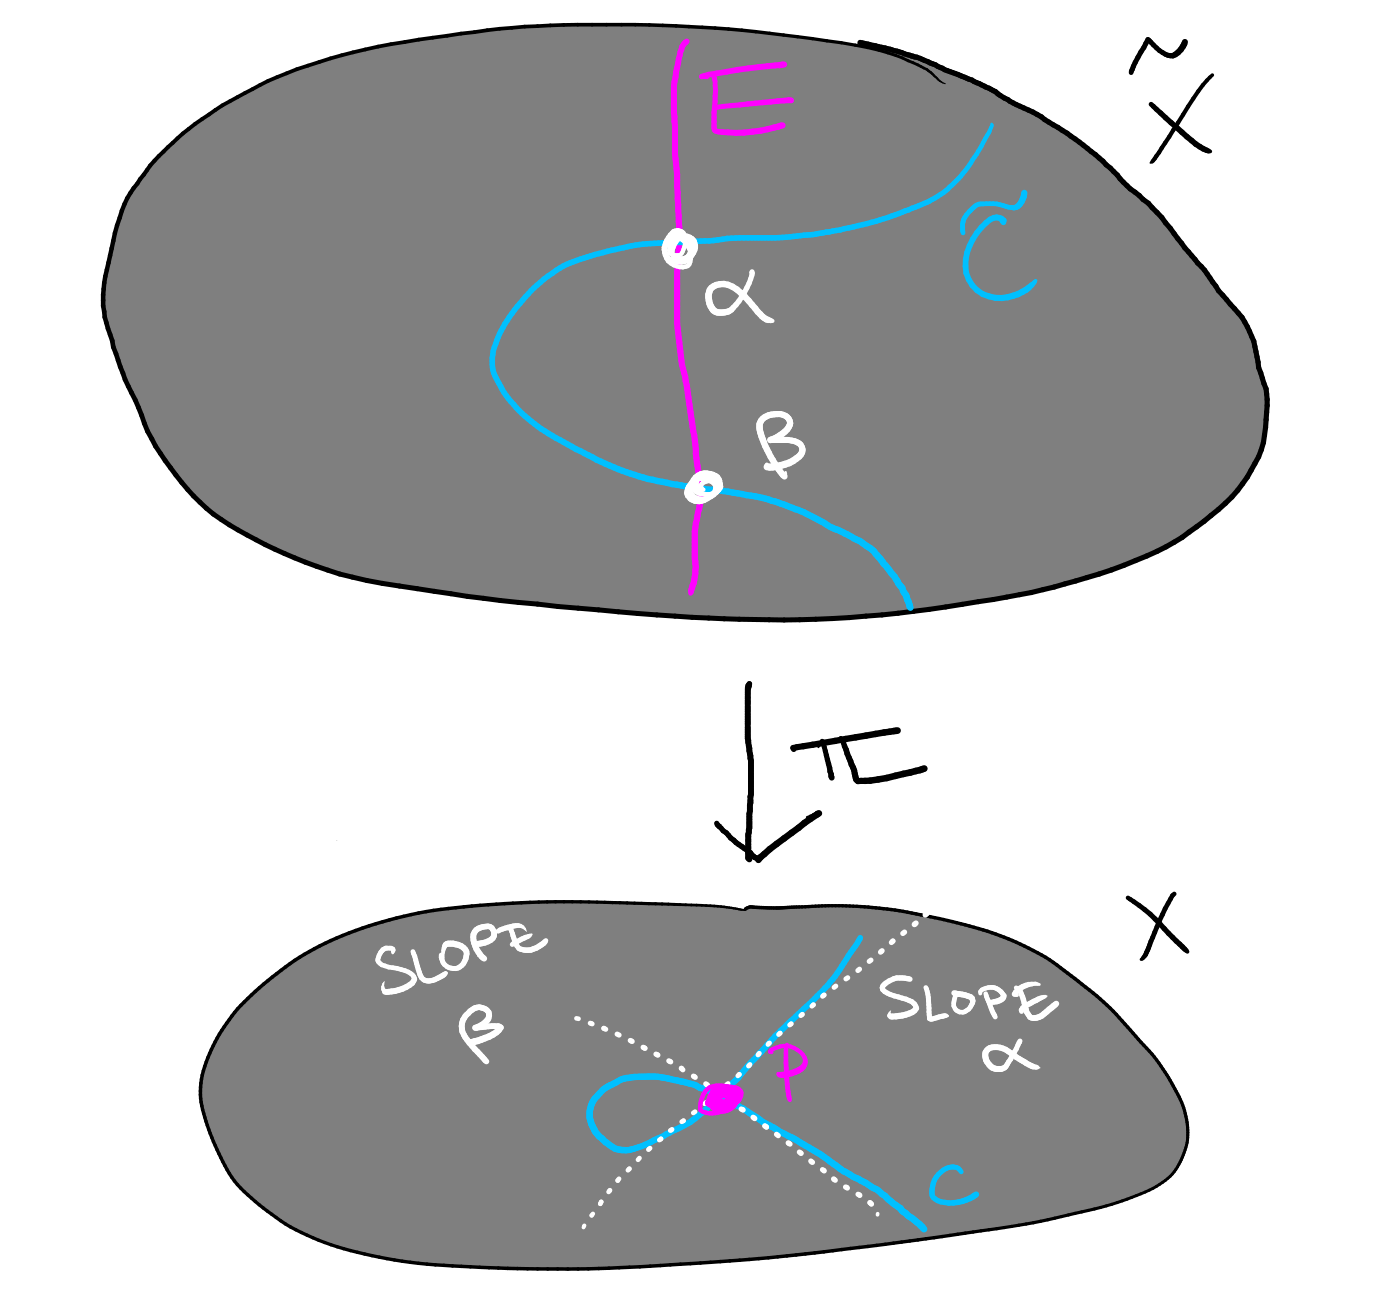 E
X̃
C̃
α
β
π
X
SLOPE
β
SLOPE
α
P
C